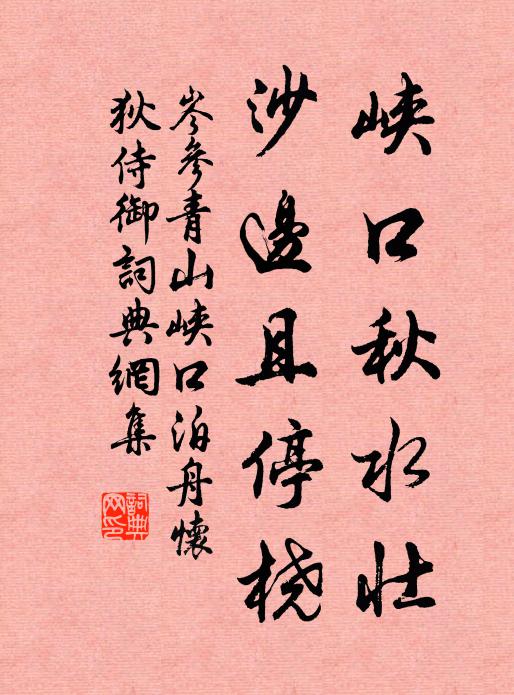 峡口秋水壮
沙邊且停桡
岑參青山峡口泊舟懷
狄侍御詞典網集
詞典网印